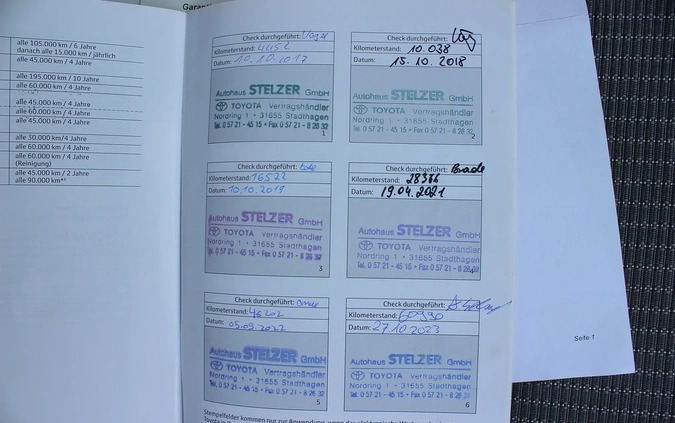 Garan
alle 105.000 km / 6 Jahre
danach alle 15.000 km / jährlich
alle 45.000 km / 4 Jahre
alle 195.000 km / 10 Jahre
alle 60.000 km / 4 Jahre
alle 45.000 km / 4 Jahre
alle 60.000 km / 4 Jahre
alle 45.000 km / 4 Jahre
alle 30.000 km/4 Jahre
alle 60.000 km / 4 Jahre
alle 60.000 km / 4 Jahre
(Reinigung)
alle 45.000 km / 2 Jahre
alle 90.000 km*⁶
Check durchgeführt:
Kilometerstand: 4452
Datum: 10.10.2017
Autohaus STELZER GmbH
TOYOTA Vertragshändler
Nordring 1 • 31655 Stadthagen
Tel. 0 57 21 - 45 15 • Fax 0 57 21 - 8 26 32
1
Check durchgeführt:
Kilometerstand: 10.038
Datum: 15.10.2018
Autohaus STELZER GmbH
TOYOTA Vertragshändler
Nordring 1 • 31655 Stadthagen
Tel. 0 57 21 - 45 15 • Fax 0 57 21 - 8 26 32
2
Check durchgeführt:
Kilometerstand: 16522
Datum: 10.10.2019
Autohaus STELZER GmbH
TOYOTA Vertragshändler
Nordring 1 • 31655 Stadthagen
Tel. 0 57 21 - 45 15 • Fax 0 57 21 - 8 26 32
3
Check durchgeführt:
Kilometerstand:
Datum: 19.04.2021
Autohaus STELZER GmbH
TOYOTA Vertragshändler
Nordring 1 • 31655 Stadthagen
Tel. 0 57 21 - 45 15 • Fax 0 57 21 - 8 26 32
4
Check durchgeführt:
Kilometerstand: 46202
Datum: 05.09.2022
Autohaus STELZER GmbH
TOYOTA Vertragshändler
Nordring 1 • 31655 Stadthagen
Tel. 0 57 21 - 45 15 • Fax 0 57 21 - 8 26 32
5
Check durchgeführt:
Kilometerstand: 60990
Datum: 27.10.2023
Autohaus STELZER GmbH
TOYOTA Vertragshändler
Nordring 1 • 31655 Stadthagen
Tel. 0 57 21 - 45 15 • Fax 0 57 21 - 8 26 32
6
Stempelfelder kommen nur zur Anwendung, wenn das elektronische
Toyota in
Seite 1